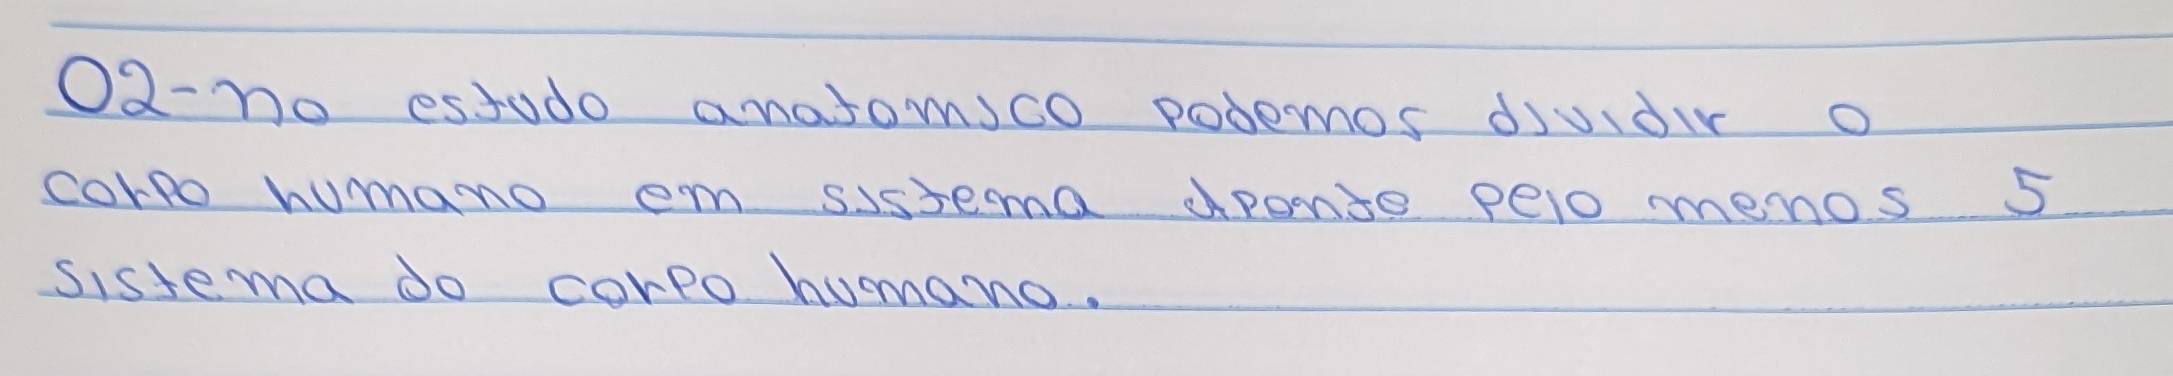 02-no estudo anatomico podemos dividir o
corpo humano em sistema aponte pelo menos 5
sistema do corpo humano.